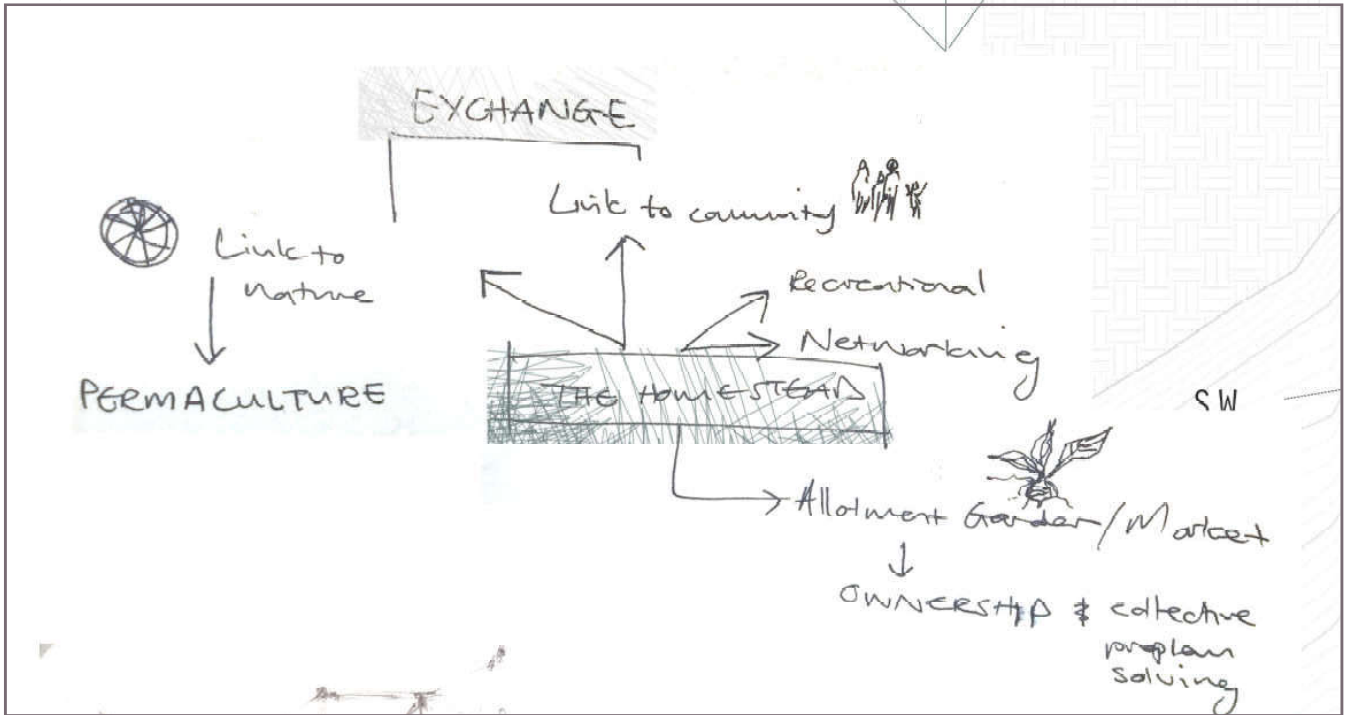 EXCHANGE
Link to community
Link to
nature
Recreational
Networking
PERMACULTURE
THE HOMESTEAD
SW
Allotment Garden/Market
OWNERSHIP & collective
proplem
solving